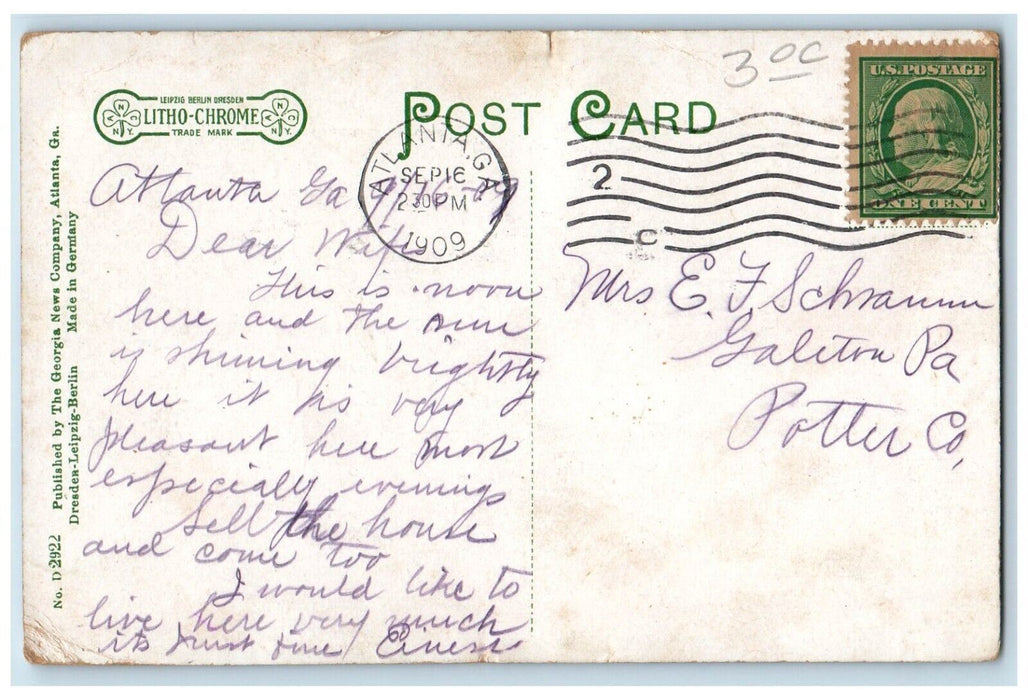 3 oc
U.S. POSTAGE
ONE CENT
LEIPZIG BERLIN DRESDEN
LITHO-CHROME
TRADE MARK
A N C N.Y.
A N C N.Y.
POST CARD
ATLANTA, GA.
SEP 16
2 30 PM
1909
2
C
Atlanta Ga 9/16-09
Dear Wife
This is noon
here and the sun
is shining brightly
here it is very
pleasant here most
especially evenings
Sell the house
and come too
I would like to
live here very much
its just fine
Mrs E. F. Schramm
Galeton Pa
Potter Co,
No. D 2922 Published by The Georgia News Company, Atlanta, Ga.
Dresden-Leipzig-Berlin Made in Germany